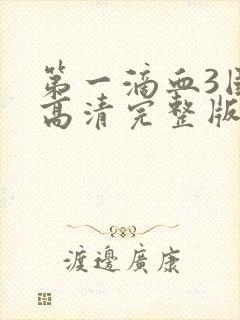 第一滴血3国
高清完整版
渡邊廣康